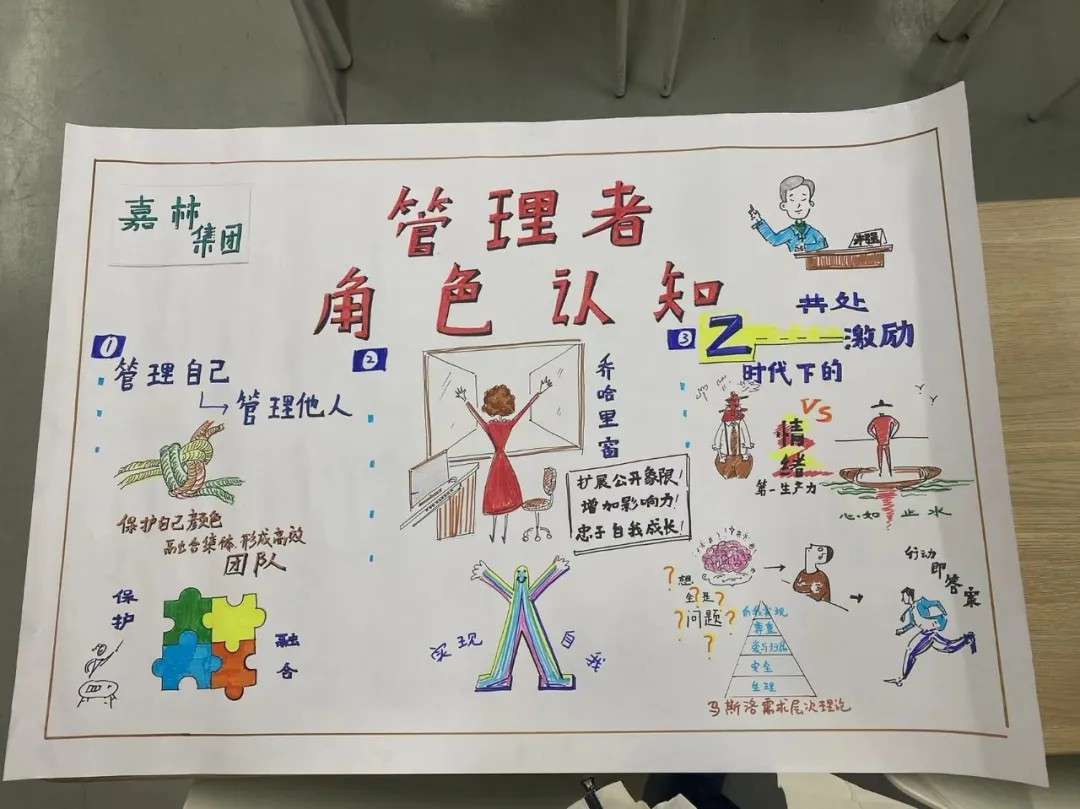 嘉林
集团
管理者
角色认知
1
管理自己
管理他人
保护自己颜色
融合集体,形成高效
团队
保护
融合
2
乔哈里窗
扩展公开象限!
增加影响力!
忠于自我成长!
实现
自我
3
共处
Z
激励
时代下的
VS
情绪
第一生产力
心如止水
?想,
全是?
?问题?
?
自我实现
尊重
爱与归属
安全
生理
马斯洛需求层次理论
行动
即
答案